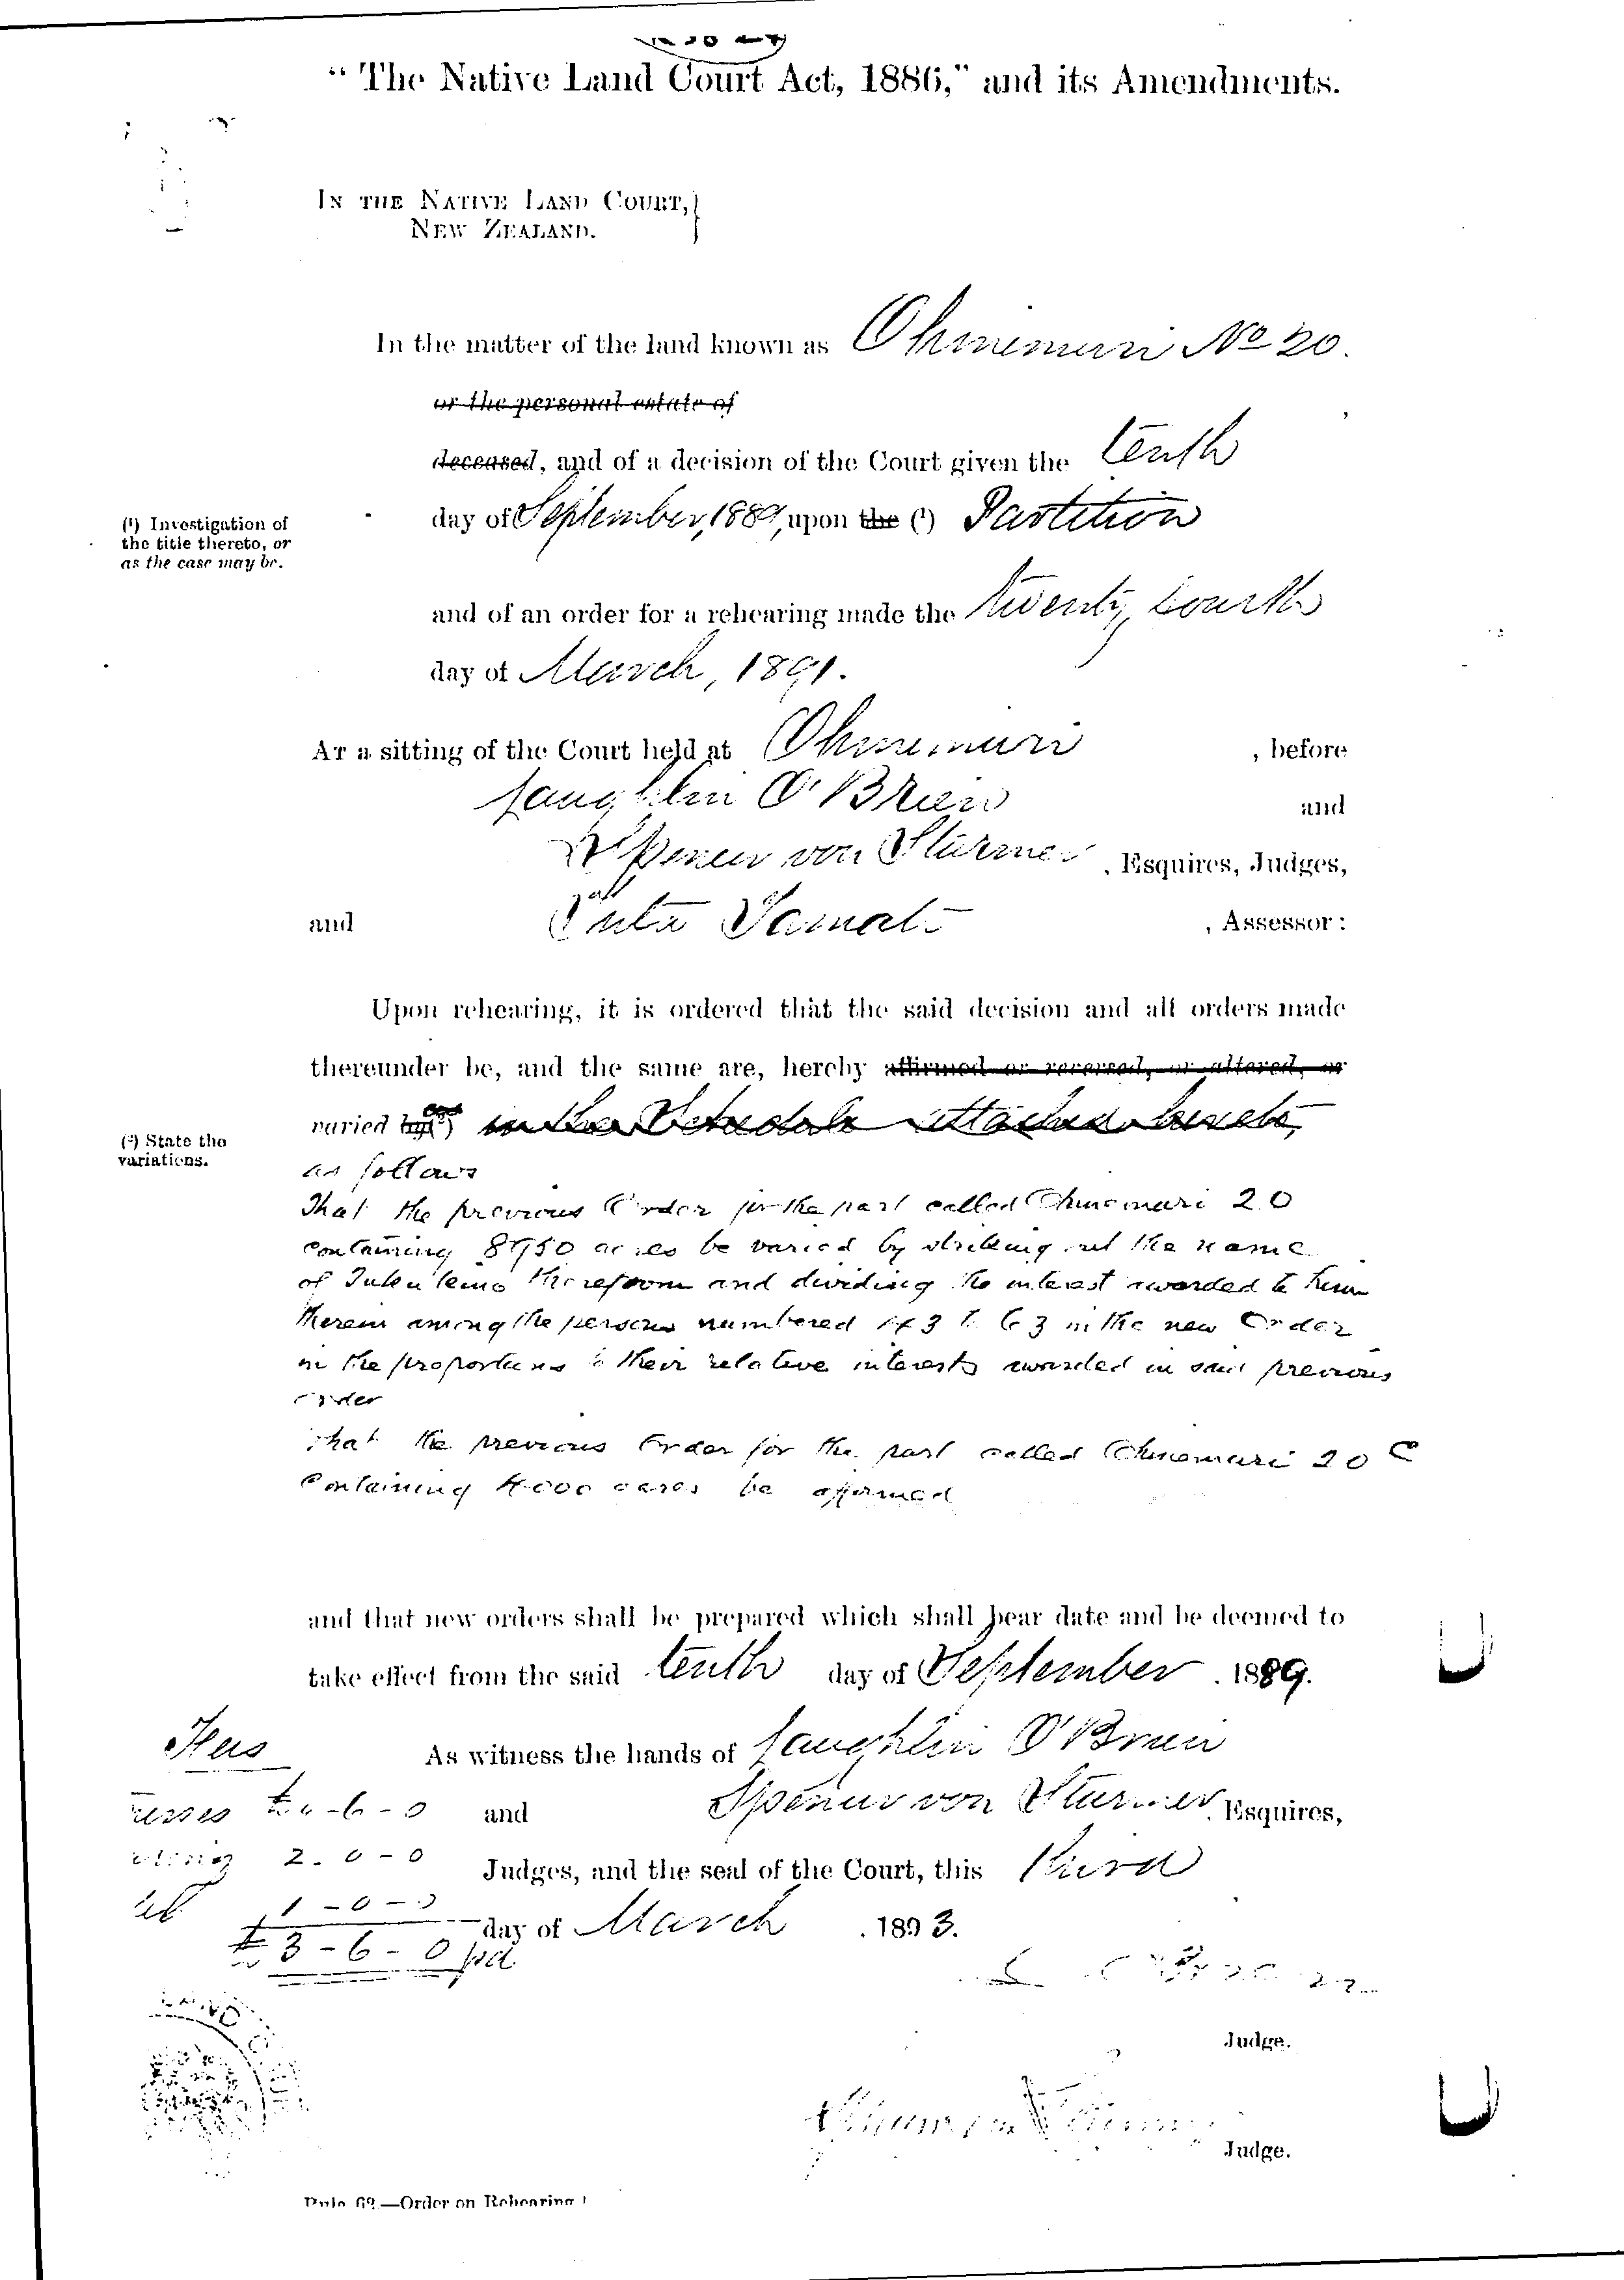 "The Native Land Court Act, 1886," and its Amendments.
IN THE NATIVE LAND COURT,
NEW ZEALAND.
In the matter of the land known as Ohinemuri No 20.
or the personal estate of
deceased, and of a decision of the Court given the tenth
day of September, 1889, upon the (1) Partition
(1) Investigation of
the title thereto, or
as the case may be.
and of an order for a rehearing made the twenty fourth
day of March, 1891.
At a sitting of the Court held at Ohinemuri , before
Laughlin O'Brien and
Spencer von Stürmer , Esquires, Judges,
and , Assessor:
Upon rehearing, it is ordered that the said decision and all orders made
thereunder be, and the same are, hereby affirmed or reversed, or altered, or
varied in the Schedule attached hereto,
(2) State the
variations.
as follows
That the previous Order for the part called Ohinemuri 20
containing acres be varied by striking out the name
of therefrom and dividing the interest awarded to him
therein among the persons numbered to 63 in the new Order
in the proportions to their relative interests awarded in said previous
order
That the previous Order for the part called Ohinemuri 20 C
containing 4000 acres be affirmed
and that new orders shall be prepared which shall bear date and be deemed to
take effect from the said tenth day of September , 1889.
As witness the hands of Laughlin O'Brien
and Spencer von Stürmer, Esquires,
Judges, and the seal of the Court, this third
day of March , 1893.
2 . 0 - 0
1 - 0 - 0
£ 3 - 6 - 0 pd
Judge.
Judge.
Rule 62.—Order on Rehearing